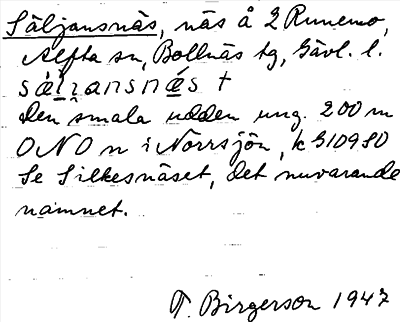 Säljansnäs, näs å 2 Runemo,
Alfta sn, Bollnäs tg, Gävl. l.
sälʒansnäs †
Den smala udden ung. 200 m
ONO n i Norrsjön, k 310980
Se Silkesnäset, det nuvarande
namnet.
T. Birgerson 1947